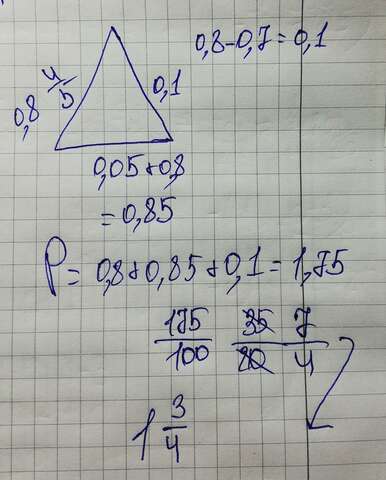 0,8-0,7=0,1
4/5
0,8
0,1
0,05+0,8
=0,85
P=0,8+0,85+0,1=1,75
175/100 35/20 7/4
1 3/4